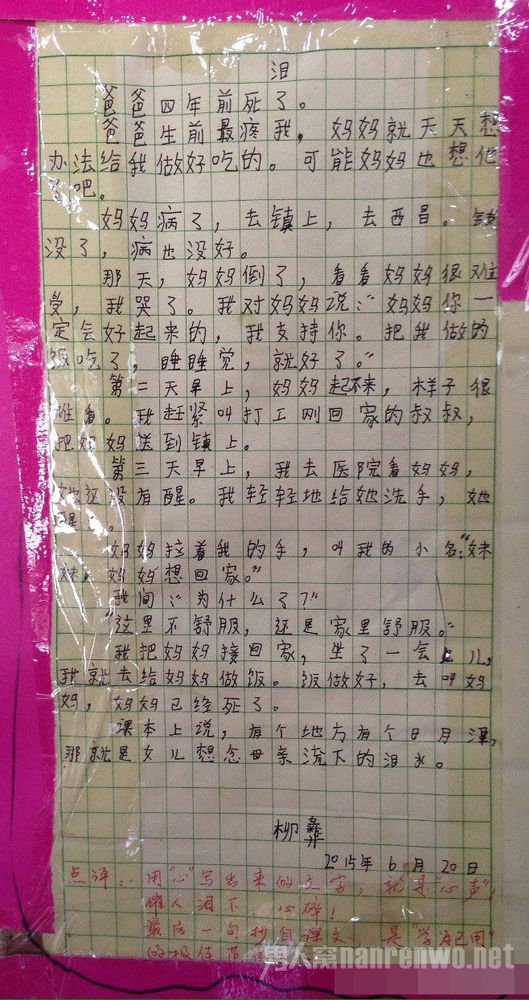 泪
爸爸四年前死了。
爸爸生前最疼我，妈妈就天天想
办法给我做好吃的。可能妈妈也想他
了吧。
妈妈病了，去镇上，去西昌。钱
没了，病也没好。
那天，妈妈倒了，看看妈妈很难
受，我哭了。我对妈妈说：“妈妈你一
定会好起来的，我支持你。把我做的
饭吃了，睡睡觉，就好了。”
第二天早上，妈妈起不来，样子很
难看。我赶紧叫打工刚回家的叔叔，
把妈妈送到镇上。
第三天早上，我去医院看妈妈，
她还没有醒。我轻轻地给她洗手，她
醒了。
妈妈拉着我的手，叫我的小名：“妹
妹，妈妈想回家。”
我问：“为什么了？”
“这里不舒服，还是家里舒服。”
我把妈妈接回家，坐了一会儿，
我就去给妈妈做饭。饭做好，去叫妈
妈，妈妈已经死了。
课本上说，有个地方有个日月潭，
那就是女儿想念母亲流下的泪水。
柳彝
2015年6月20日
点评：用“心”写出来的文字，就是“心声”！
催人泪下 心碎！
最后一句抄自课文，是“学为己用”
的极佳
男人窝nanrenwo.net